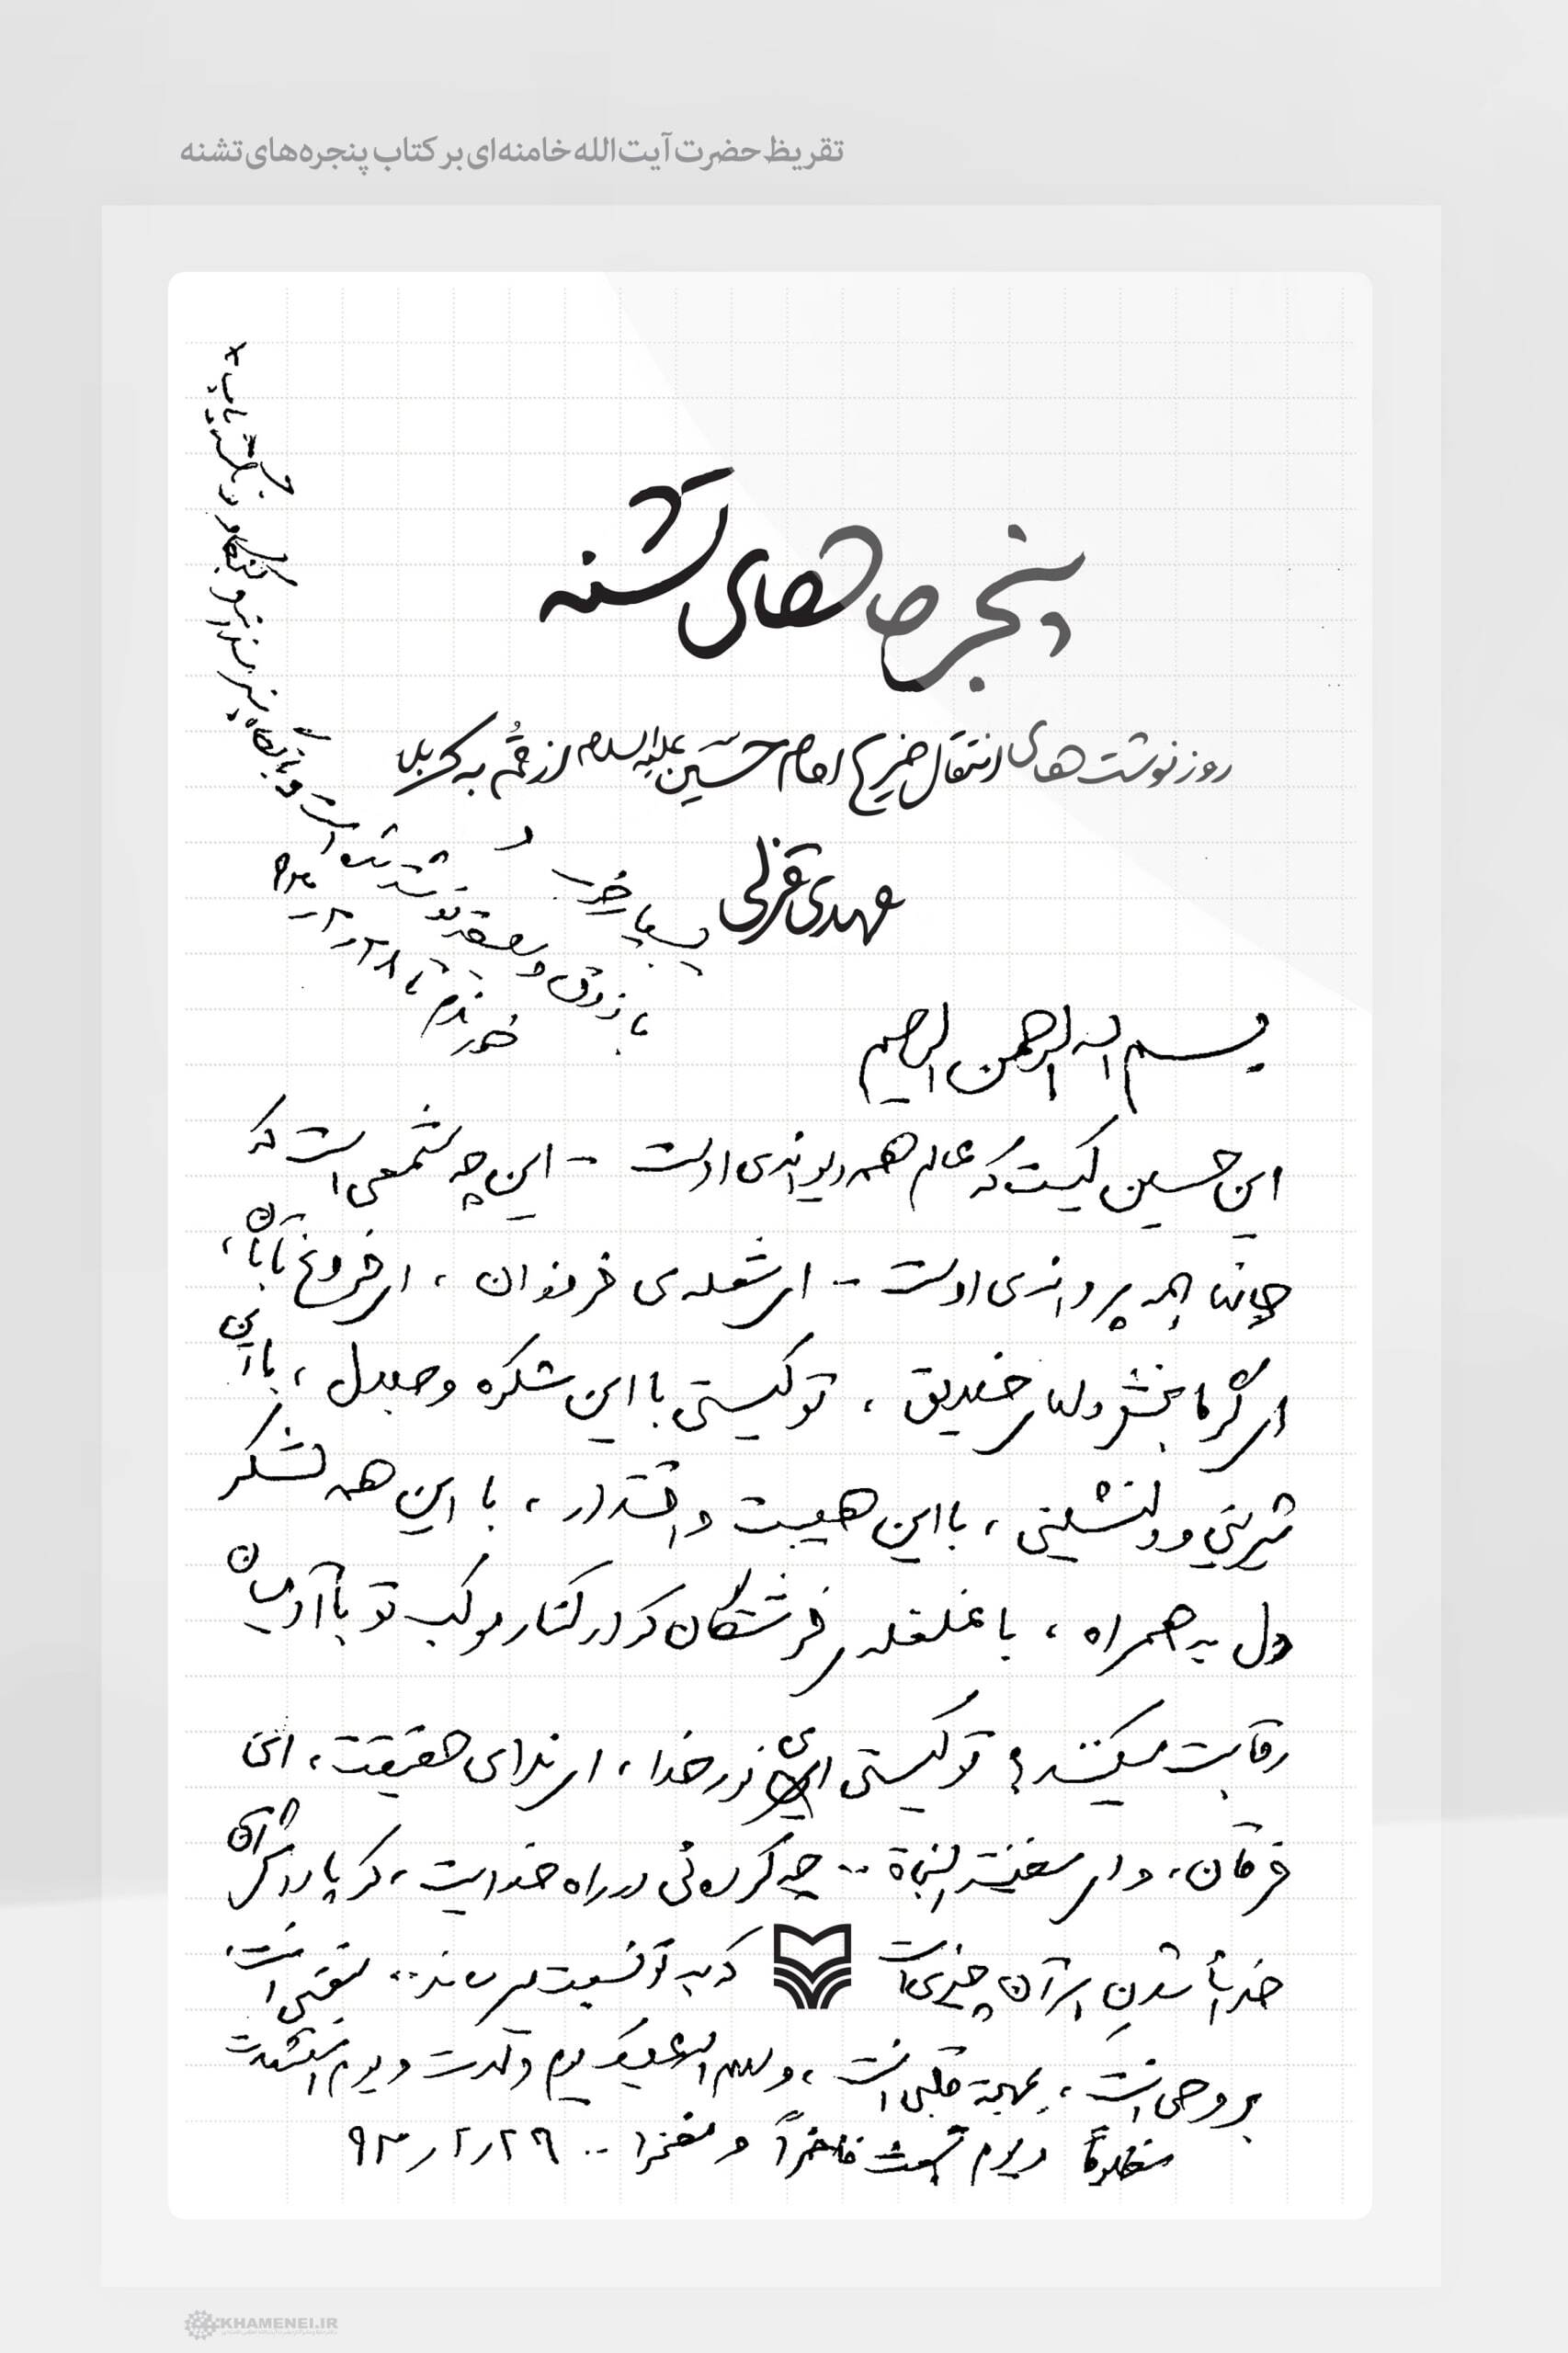 تقریظ حضرت آیت‌الله خامنه‌ای بر کتاب پنجره‌های تشنه
پنجره‌های تشنه
روزنوشت‌های انتقال ضریح امام حسین علیه‌السلام از قم به کربلا
مهدی قزلی
بسیار خوب و
با ذوق و سلیقه نوشته شده است و با نگاه
خوردم تا
بسم الله الرحمن الرحیم
این حسین کیست که عالم همه دیوانه‌ی اوست - این چه شمعی است که
جانها همه پروانه‌ی اوست - ای شعله‌ی فروزان ، ای فروغ تابان ،
ای گرمابخش دلهای خلایق ، تو کیستی با این شکوه و جلال ، با این
شیرینی و دلنشینی ، با این هیبت و اقتدار ، با این همه لشکر
دل به همراه ، با غلغله‌ی فرشتگان که در کنار موکب تو با آدمیان
رقابت میکنند ؟ تو کیستی ای نور خدا ، ای ندای حقیقت ، ای
فرقان ، و ای سفینة النجاة .. چه کرده‌ئی در راه خدایت ، که پاداش آن
خدائی شدن هر آن چیزی است که به تو نسبت میرساند .. بنفسی انت
بروحی انت ، بمهجة قلبی انت ، و سلام الله علیک یوم ولدت و یوم استشهدت
مظلوماً و یوم تبعث فاخراً و مفتخرا .. ۹۳/۲/۲۹
KHAMENEI.IR